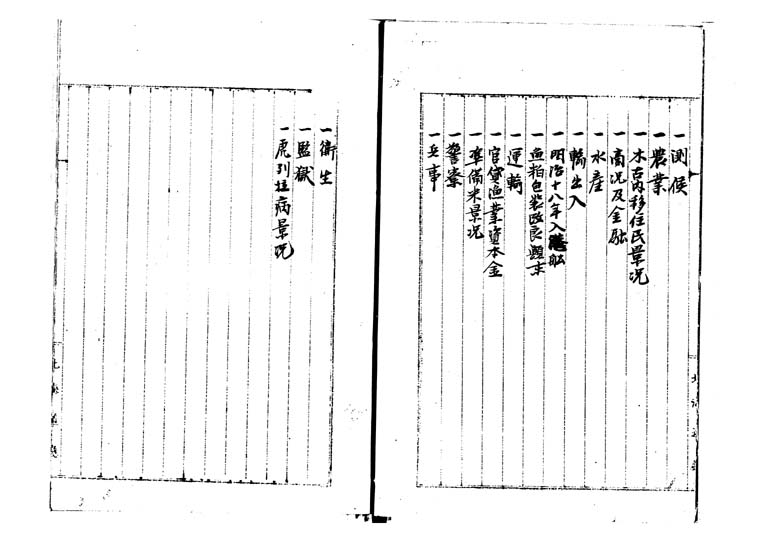 一測候
一農業
一木古内移住民景况
一商况及金融
一水産
一輸出入
一明治十八年入港船
一魚粕包装改良顛末
一運輸
一官貸漁業資本金
一準備米景况
一警察
一兵事
一衛生
一監獄
一虎列拉病景况